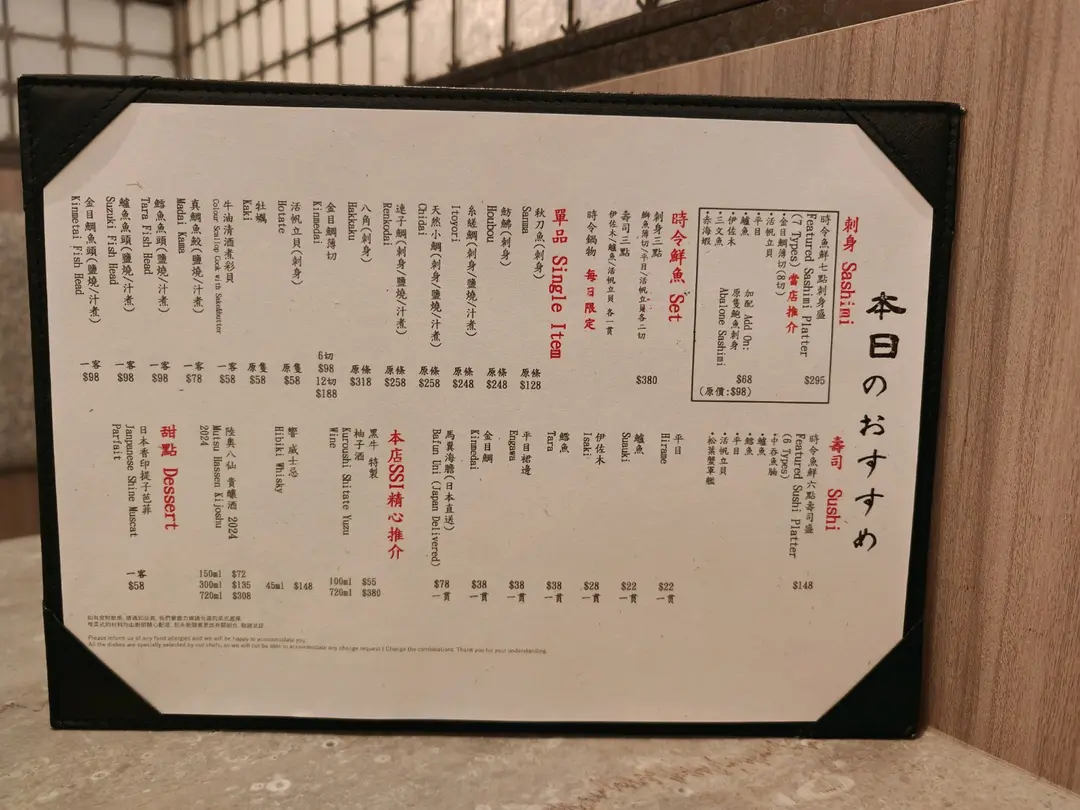 本日のおすすめ
刺身 Sashimi
時令魚鮮七點刺身盛
Featured Sashimi Platter
(7 Types) 當店推介
$295
•金目鯛薄切(8切)
•活帆立貝
•平目
•鱸魚
•伊佐木
•三文魚
•赤海蝦
加配 Add On:
原隻鮑魚刺身
Abalone Sashimi
$68
(原價:$98)
時令鮮魚 Set
刺身三點
鰤魚薄切/平目/活帆立貝各二切
壽司三點
伊佐木/鱸魚/活帆立貝 各一貫
時令鍋物 每日限定
$380
單品 Single Item
秋刀魚(刺身)
Sanma
原條
$128
魴鮄(刺身)
Houbou
原條
$248
糸縒鯛(刺身/鹽燒/汁煮)
Itoyori
原條
$248
天然小鯛(刺身/鹽燒/汁煮)
Chidai
原條
$258
連子鯛(刺身/鹽燒/汁煮)
Renkodai
原條
$258
八角(刺身)
Hakkaku
原條
$318
金目鯛薄切
Kinmedai
6切
$98
12切
$188
活帆立貝(刺身)
Hotate
原隻
$58
牡蠣
Kaki
原隻
$58
牛油清酒煮彩貝
Colour Scallop Cook with Sake&Butter
一客
$58
真鯛魚鮫(鹽燒/汁煮)
Madai Kama
一客
$78
鱈魚魚頭(鹽燒/汁煮)
Tara Fish Head
一客
$98
鱸魚魚頭(鹽燒/汁煮)
Suzuki Fish Head
一客
$98
金目鯛魚頭(鹽燒/汁煮)
Kinmetai Fish Head
一客
$98
壽司 Sushi
時令魚鮮六點壽司盛
Featured Sushi Platter
(6 Types)
$148
•中吞魚腩
•鱸魚
•鱈魚
•平目
•活帆立貝
•松葉蟹軍艦
平目
Hirame
$22
一貫
鱸魚
Suzuki
$22
一貫
伊佐木
Isaki
$28
一貫
鱈魚
Tara
$38
一貫
平目裙邊
Engawa
$38
一貫
金目鯛
Kinmedai
$38
一貫
馬糞海膽(日本直送)
Bafun Uni (Japan Delivered)
$78
一貫
本店SSI精心推介
黑牛 特製
柚子酒
Kuroushi Shitate Yuzu
Wine
100ml $55
720ml $380
響 威士忌
Hibiki Whisky
45ml $148
陸奧八仙 貴釀酒 2024
Mutsu Hassen Kijoshu
2024
150ml $72
300ml $135
720ml $308
甜點 Dessert
日本香印提子芭菲
Janpanese Shine Muscat
Parfait
一客
$58
Please inform us of any food allergies and we will be happy to accommodate you.
All the dishes are specially selected by our chefs, so we will not be able to accommodate any change request / Change the combinations. Thank you for your understanding.